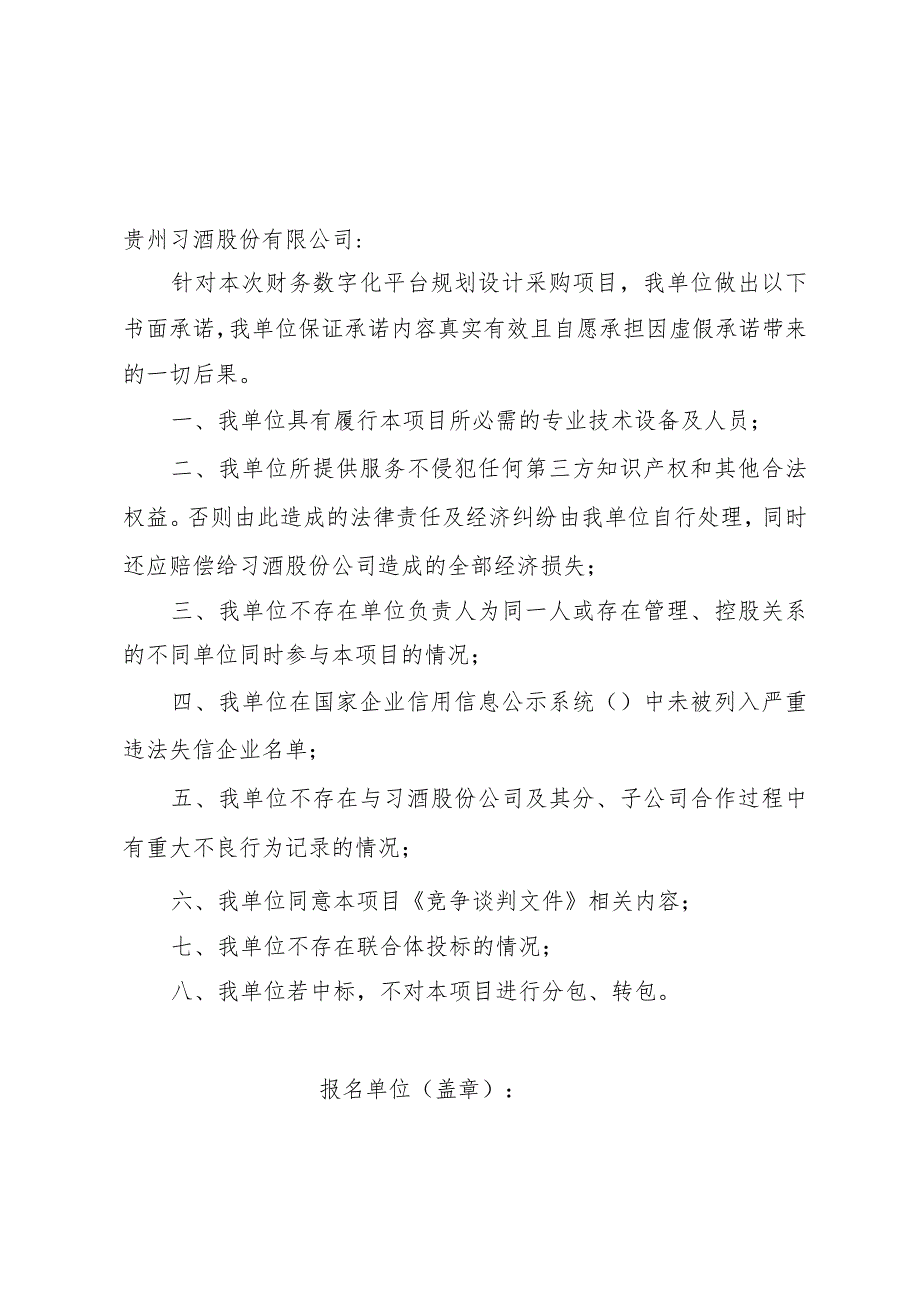 贵州习酒股份有限公司:
针对本次财务数字化平台规划设计采购项目，我单位做出以下
书面承诺,我单位保证承诺内容真实有效且自愿承担因虚假承诺带来
的一切后果。
一、我单位具有履行本项目所必需的专业技术设备及人员；
二、我单位所提供服务不侵犯任何第三方知识产权和其他合法
权益。否则由此造成的法律责任及经济纠纷由我单位自行处理，同时
还应赔偿给习酒股份公司造成的全部经济损失；
三、我单位不存在单位负责人为同一人或存在管理、控股关系
的不同单位同时参与本项目的情况；
四、我单位在国家企业信用信息公示系统（）中未被列入严重
违法失信企业名单；
五、我单位不存在与习酒股份公司及其分、子公司合作过程中
有重大不良行为记录的情况；
六、我单位同意本项目《竞争谈判文件》相关内容；
七、我单位不存在联合体投标的情况；
八、我单位若中标，不对本项目进行分包、转包。
报名单位（盖章）：